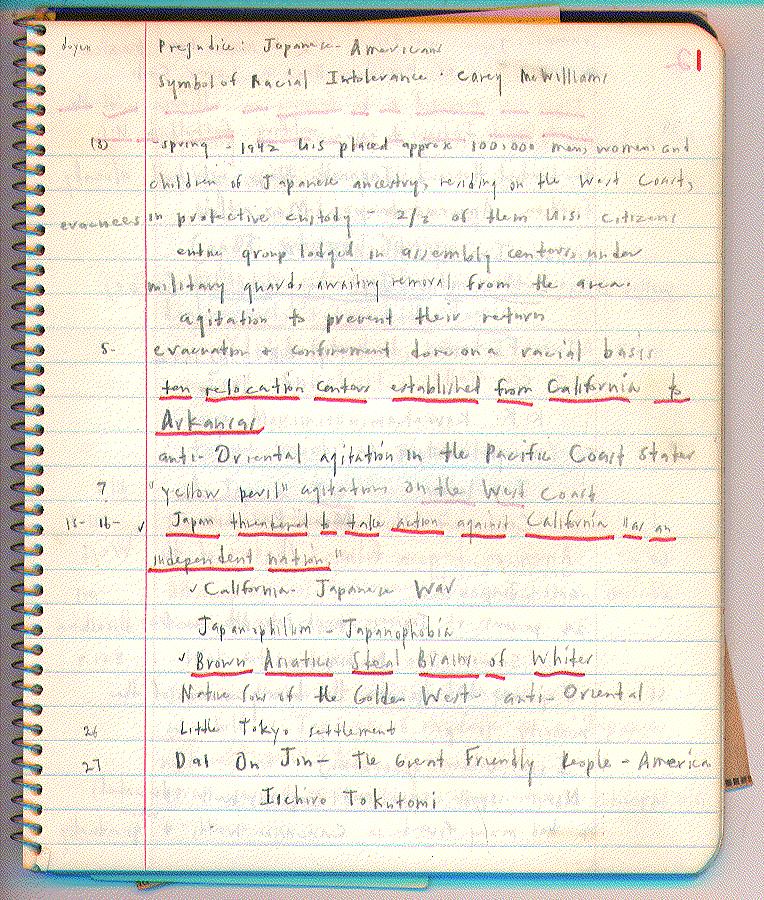 Prejudice: Japanese-Americans
Symbol of Racial Intolerance. Carey McWilliams
(3) -spring - 1942 U.S placed approx 100,000 men, women, and
children of Japanese ancestry, residing on the West Coast,
evacuees in protective custody - 2/2 of them U.S. citizens
entire group lodged in assembly centers, under
military guard, awaiting removal from the area.
agitation to prevent their return
5- evacuation & confinement done on a racial basis
ten relocation centers established from California to
Arkansas
anti-Oriental agitation in the Pacific Coast States
7 "yellow peril" agitation on the West Coast
15-16- ✓ Japan threatened to take action against California "as an
independent nation"
✓ California-Japanese War
Japanophilism - Japanophobia
✓ Brown Asiatics Steal Brains of Whites
Native Sons of the Golden West anti-Oriental
26 Little Tokyo settlement
27 Dai On Jin - The Great Friendly People - America
Iichiro Tokutomi